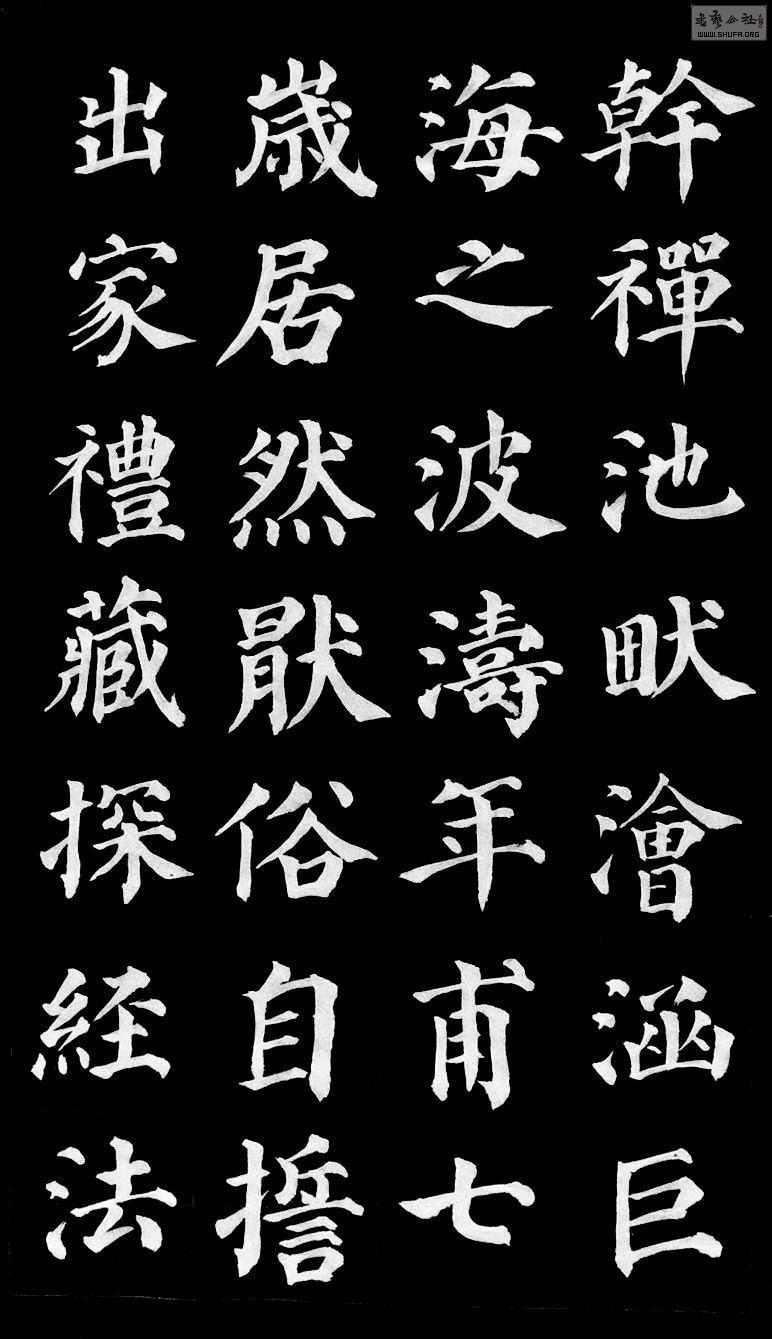 幹禪池畎澮涵巨
海之波濤年甫七
歳居然猒俗自誓
出家禮藏探経法
WWW.SHUFA.ORG